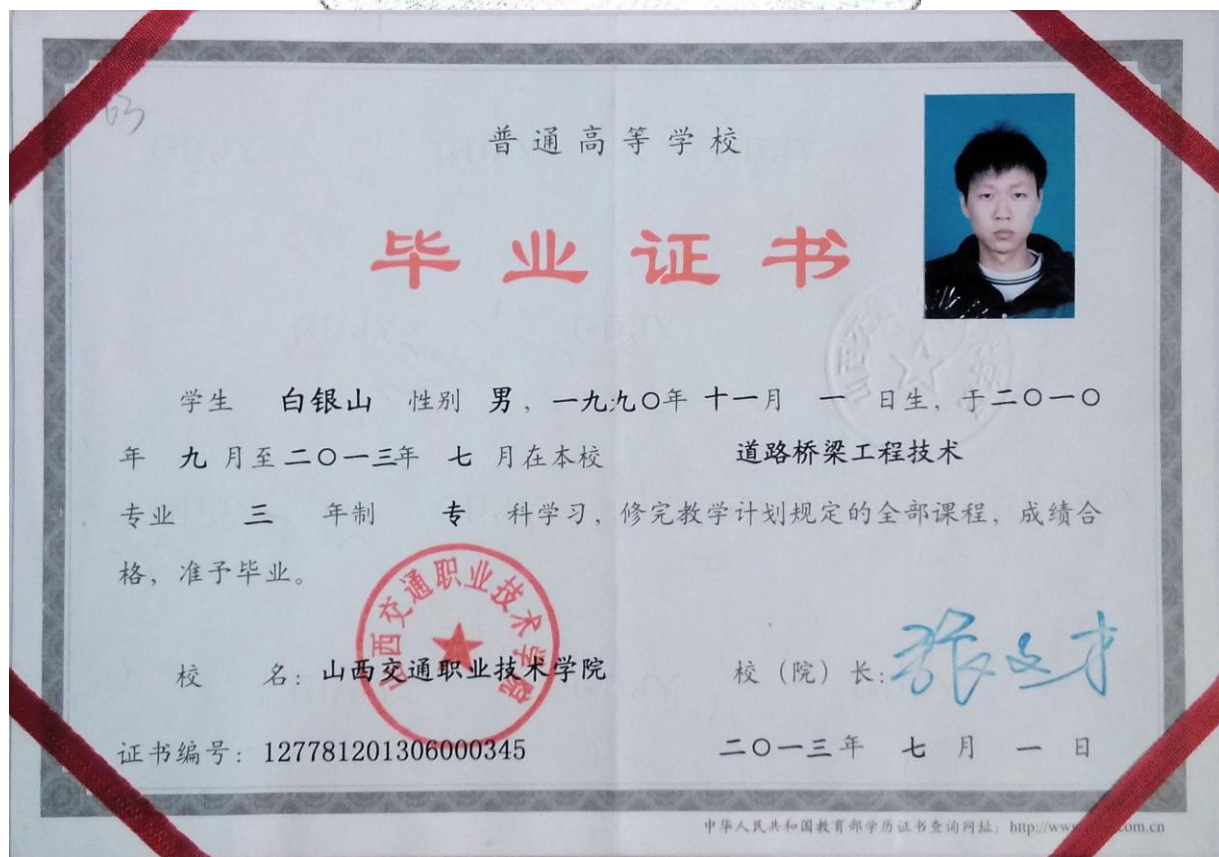 63
普通高等学校
毕业证书
学生 白银山 性别 男，一九九〇年 十一月 一 日生，于二〇一〇
年 九 月至二〇一三年 七 月在本校 道路桥梁工程技术
专业 三 年制 专 科学习，修完教学计划规定的全部课程，成绩合
格，准予毕业。
山西交通职业技术学院
校 名：山西交通职业技术学院 校（院）长：张文才
证书编号：127781201306000345 二〇一三年 七 月 一 日
中华人民共和国教育部学历证书查询网址：http://www com.cn